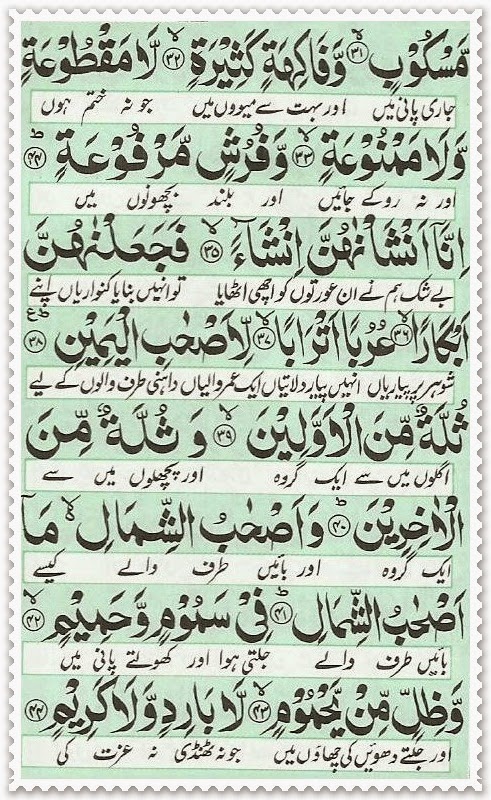 مَّسْكُوْبٍ ۙ﴿۳۱﴾ وَّفَاكِهَةٍ كَثِيْرَةٍ ۙ﴿۳۲﴾ لَّا مَقْطُوْعَةٍ
جاری پانی میں اور بہت سے میووں میں جو نہ ختم ہوں
وَّلَا مَمْنُوْعَةٍ ۙ﴿۳۳﴾ وَّفُرُشٍ مَّرْفُوْعَةٍ ؕ﴿۳۴﴾
اور نہ روکے جائیں اور بلند بچھونوں میں
اِنَّاۤ اَنْشَاْنٰهُنَّ اِنْشَآءً ۙ﴿۳۵﴾ فَجَعَلْنٰهُنَّ
بے شک ہم نے ان عورتوں کو اچھی اٹھایا تو انہیں بنایا کنواریاں اپنے
اَبْكَارًا ۙ﴿۳۶﴾ عُرُبًا اَتْرَابًا ۙ﴿۳۷﴾ لِّاَصْحٰبِ الْيَمِيْنِ ؕ﴿۳۸﴾
شوہر پر پیاریاں انہیں پیار دلاتیاں ایک عمر والیاں داہنی طرف والوں کے لیے
ثُلَّةٌ مِّنَ الْاَوَّلِيْنَ ۙ﴿۳۹﴾ وَ ثُلَّةٌ مِّنَ
اگلوں میں سے ایک گروہ اور پچھلوں میں سے
الْاٰخِرِيْنَ ؕ﴿۴۰﴾ وَاَصْحٰبُ الشِّمَالِ ۙ مَاۤ
ایک گروہ اور بائیں طرف والے کیسے
اَصْحٰبُ الشِّمَالِ ؕ﴿۴۱﴾ فِيْ سَمُوْمٍ وَّحَمِيْمٍ ۙ﴿۴۲﴾
بائیں طرف والے جلتی ہوا اور کھولتے پانی میں
وَّظِلٍّ مِّنْ يَّحْمُوْمٍ ۙ﴿۴۳﴾ لَّا بَارِدٍ وَّلَا كَرِيْمٍ ﴿۴۴﴾
اور جلتے دھوئیں کی چھاؤں میں جو نہ ٹھنڈی نہ عزت کی